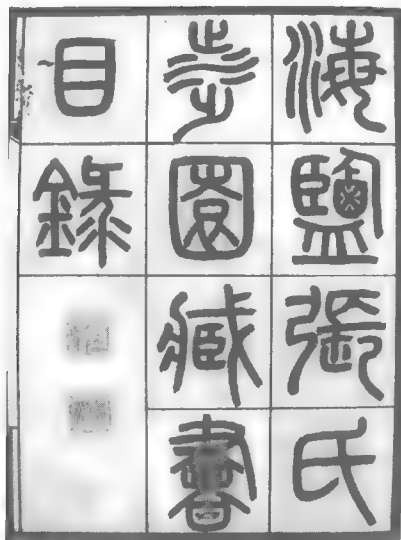 海鹽張氏
涉園藏書
目錄